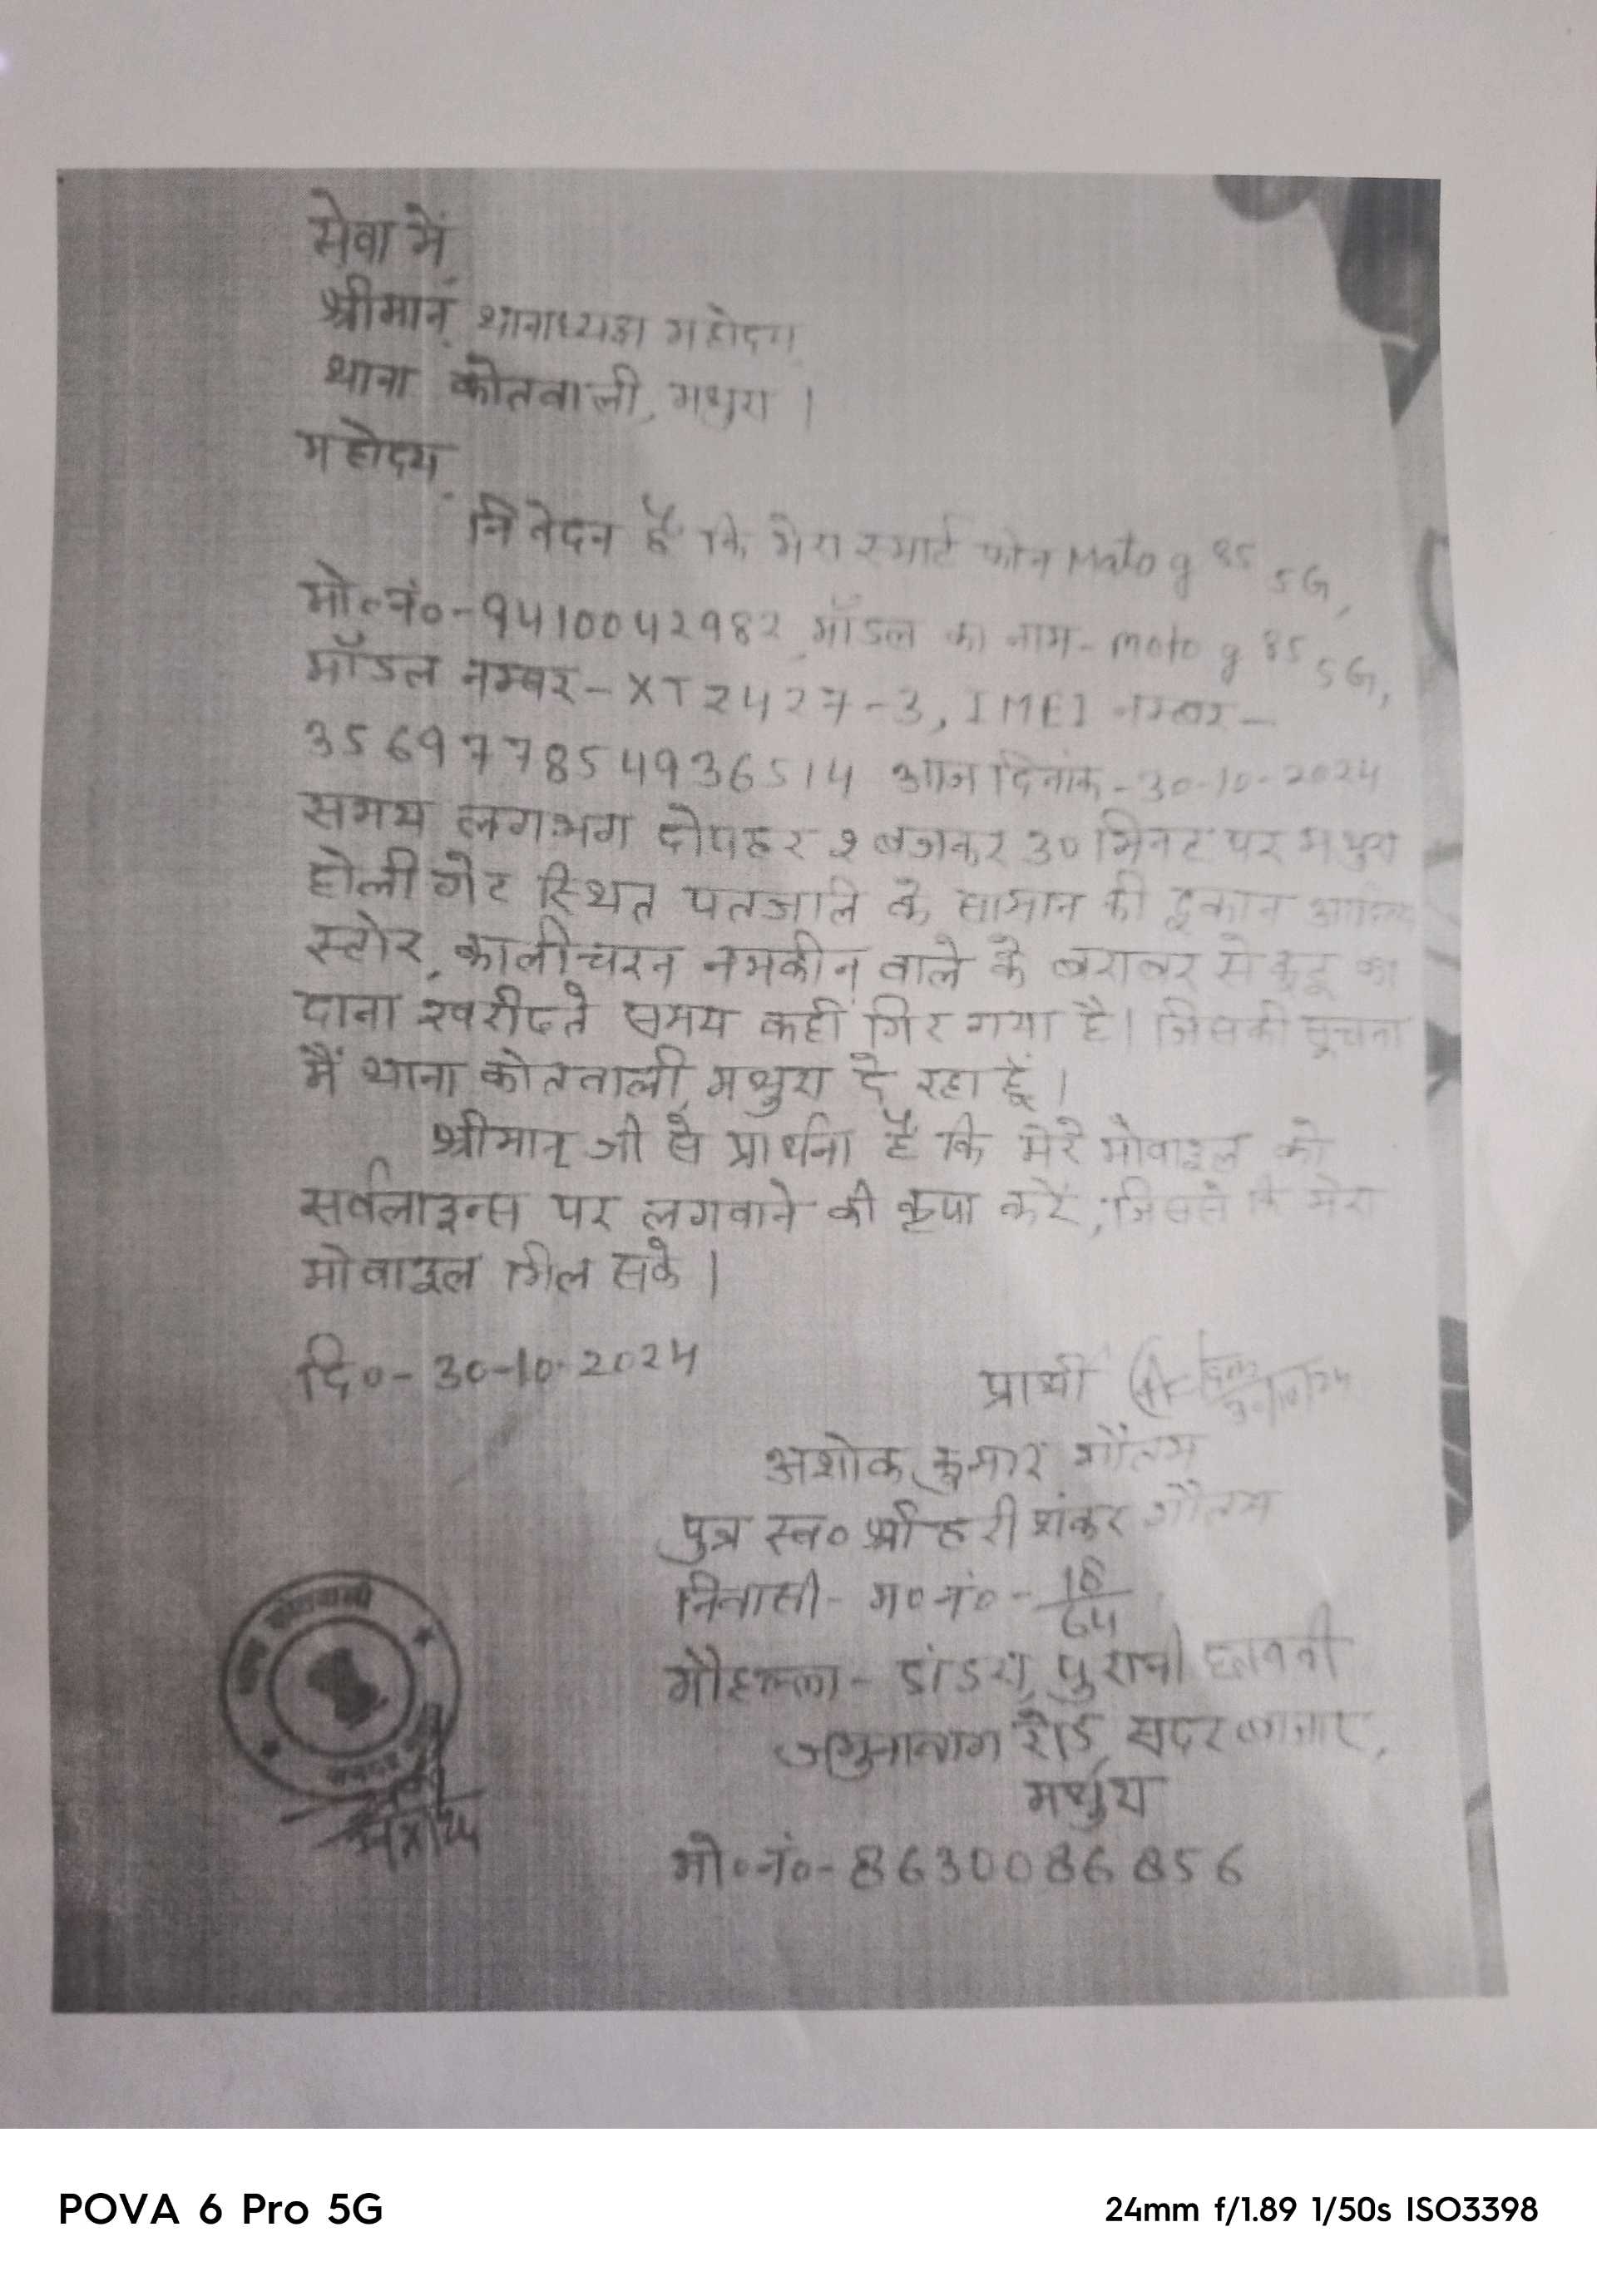 सेवा में,
श्रीमान् थानाध्यक्ष महोदय
थाना कोतवाली, मथुरा ।
महोदय,
निवेदन है कि मेरा स्मार्ट फोन Moto g 85 5G,
मो०नं०-9410042982, मॉडल का नाम- moto g 85 5G,
मॉडल नम्बर-XT2427-3, IMEI नम्बर-
356977854936514 आज दिनांक-30-10-2024
समय लगभग दोपहर बजकर 30 मिनट पर मथुरा
होली गेट स्थित पतंजलि के सामान की दुकान
स्टोर, कालीचरन नमकीन वाले के बराबर से कुटू का
दाना खरीदते समय कहीं गिर गया है। जिसकी सूचना
मैं थाना कोतवाली, मथुरा दे रहा हूँ ।
श्रीमान् जी से प्रार्थना है कि मेरे मोबाइल को
सर्वलाइन्स पर लगवाने की कृपा करें, जिससे कि मेरा
मोबाइल मिल सके ।
दि०-30-10-2024
प्रार्थी 30/10/24
अशोक कुमार गौतम
पुत्र स्व० श्री हरी शंकर गौतम
निवासी- म०नं०-
मौहल्ला- डांडरा, पुरानी छावनी
जमुनाबाग रोड, सदर बाजार,
मथुरा
मो०नं०-8630086856
कोतवाली
POVA 6 Pro 5G
24mm f/1.89 1/50s ISO3398